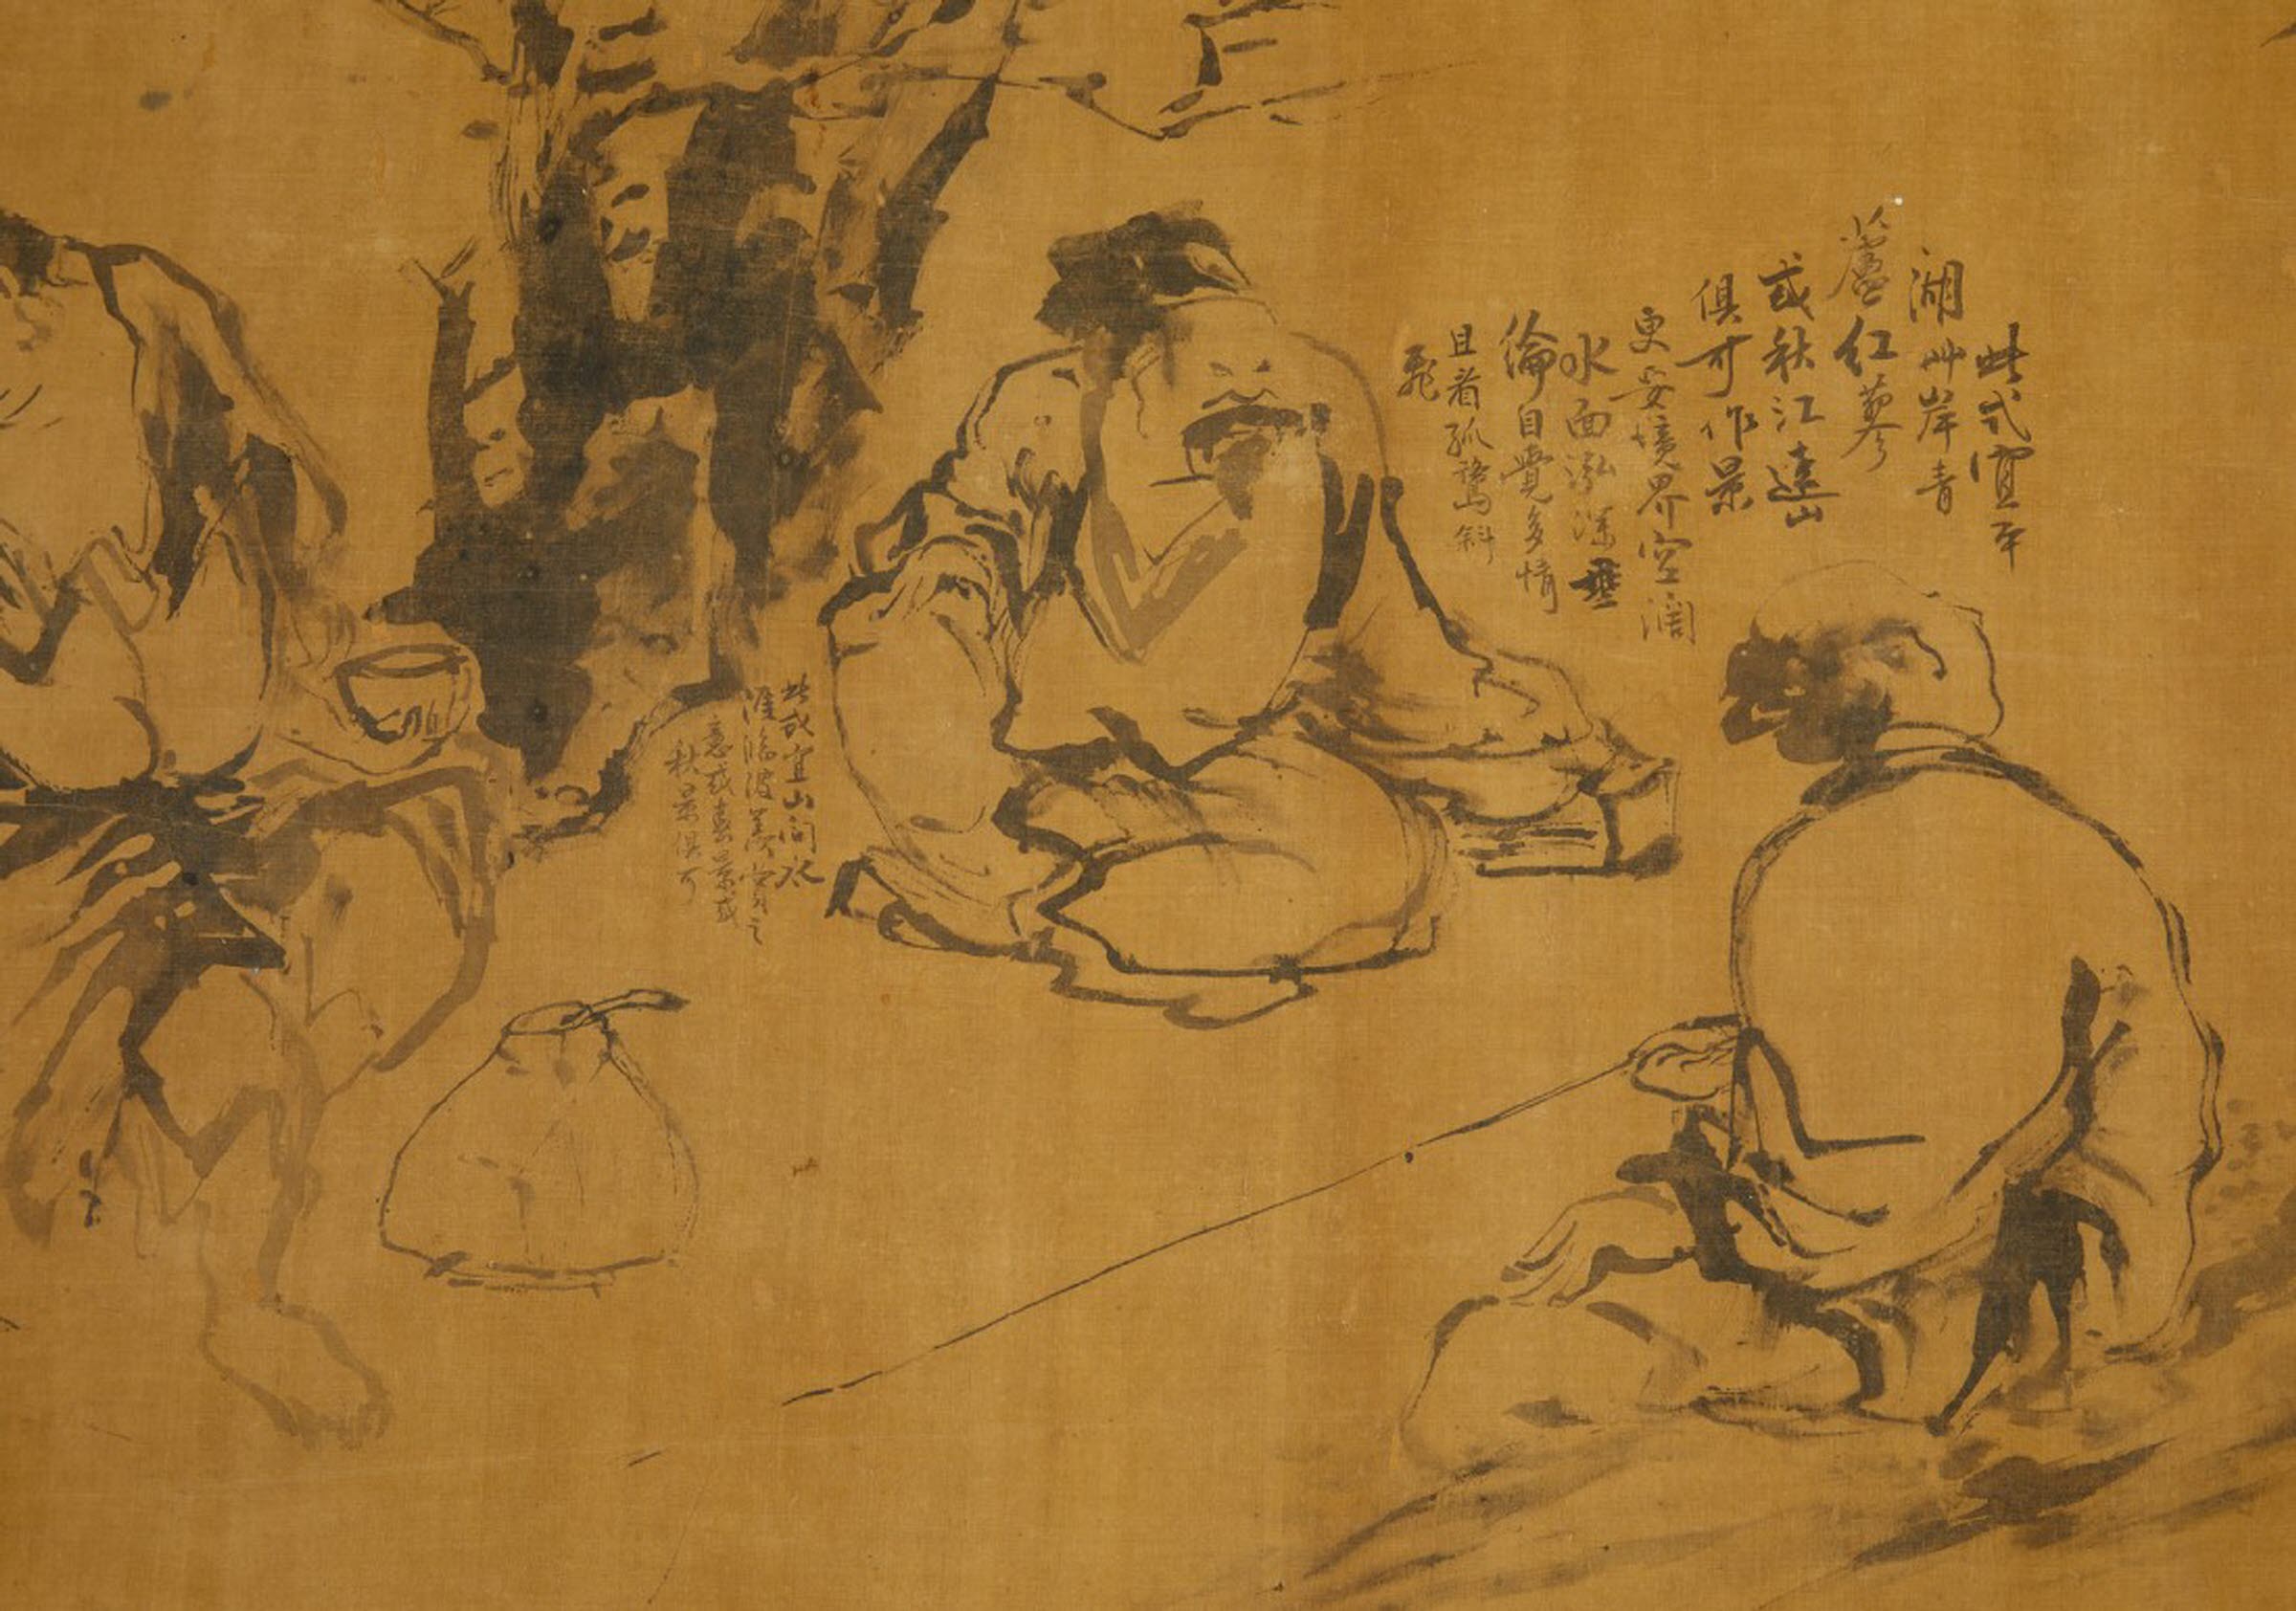 此式宜平
湖艸岸青
蘆紅蓼
或秋江遠山
俱可作景
更妥境界空濶
水面泓深垂
綸自覺多情
且看孤鶩斜
飛
此式宜山间水
涯臨波
意或春景或
秋景俱可